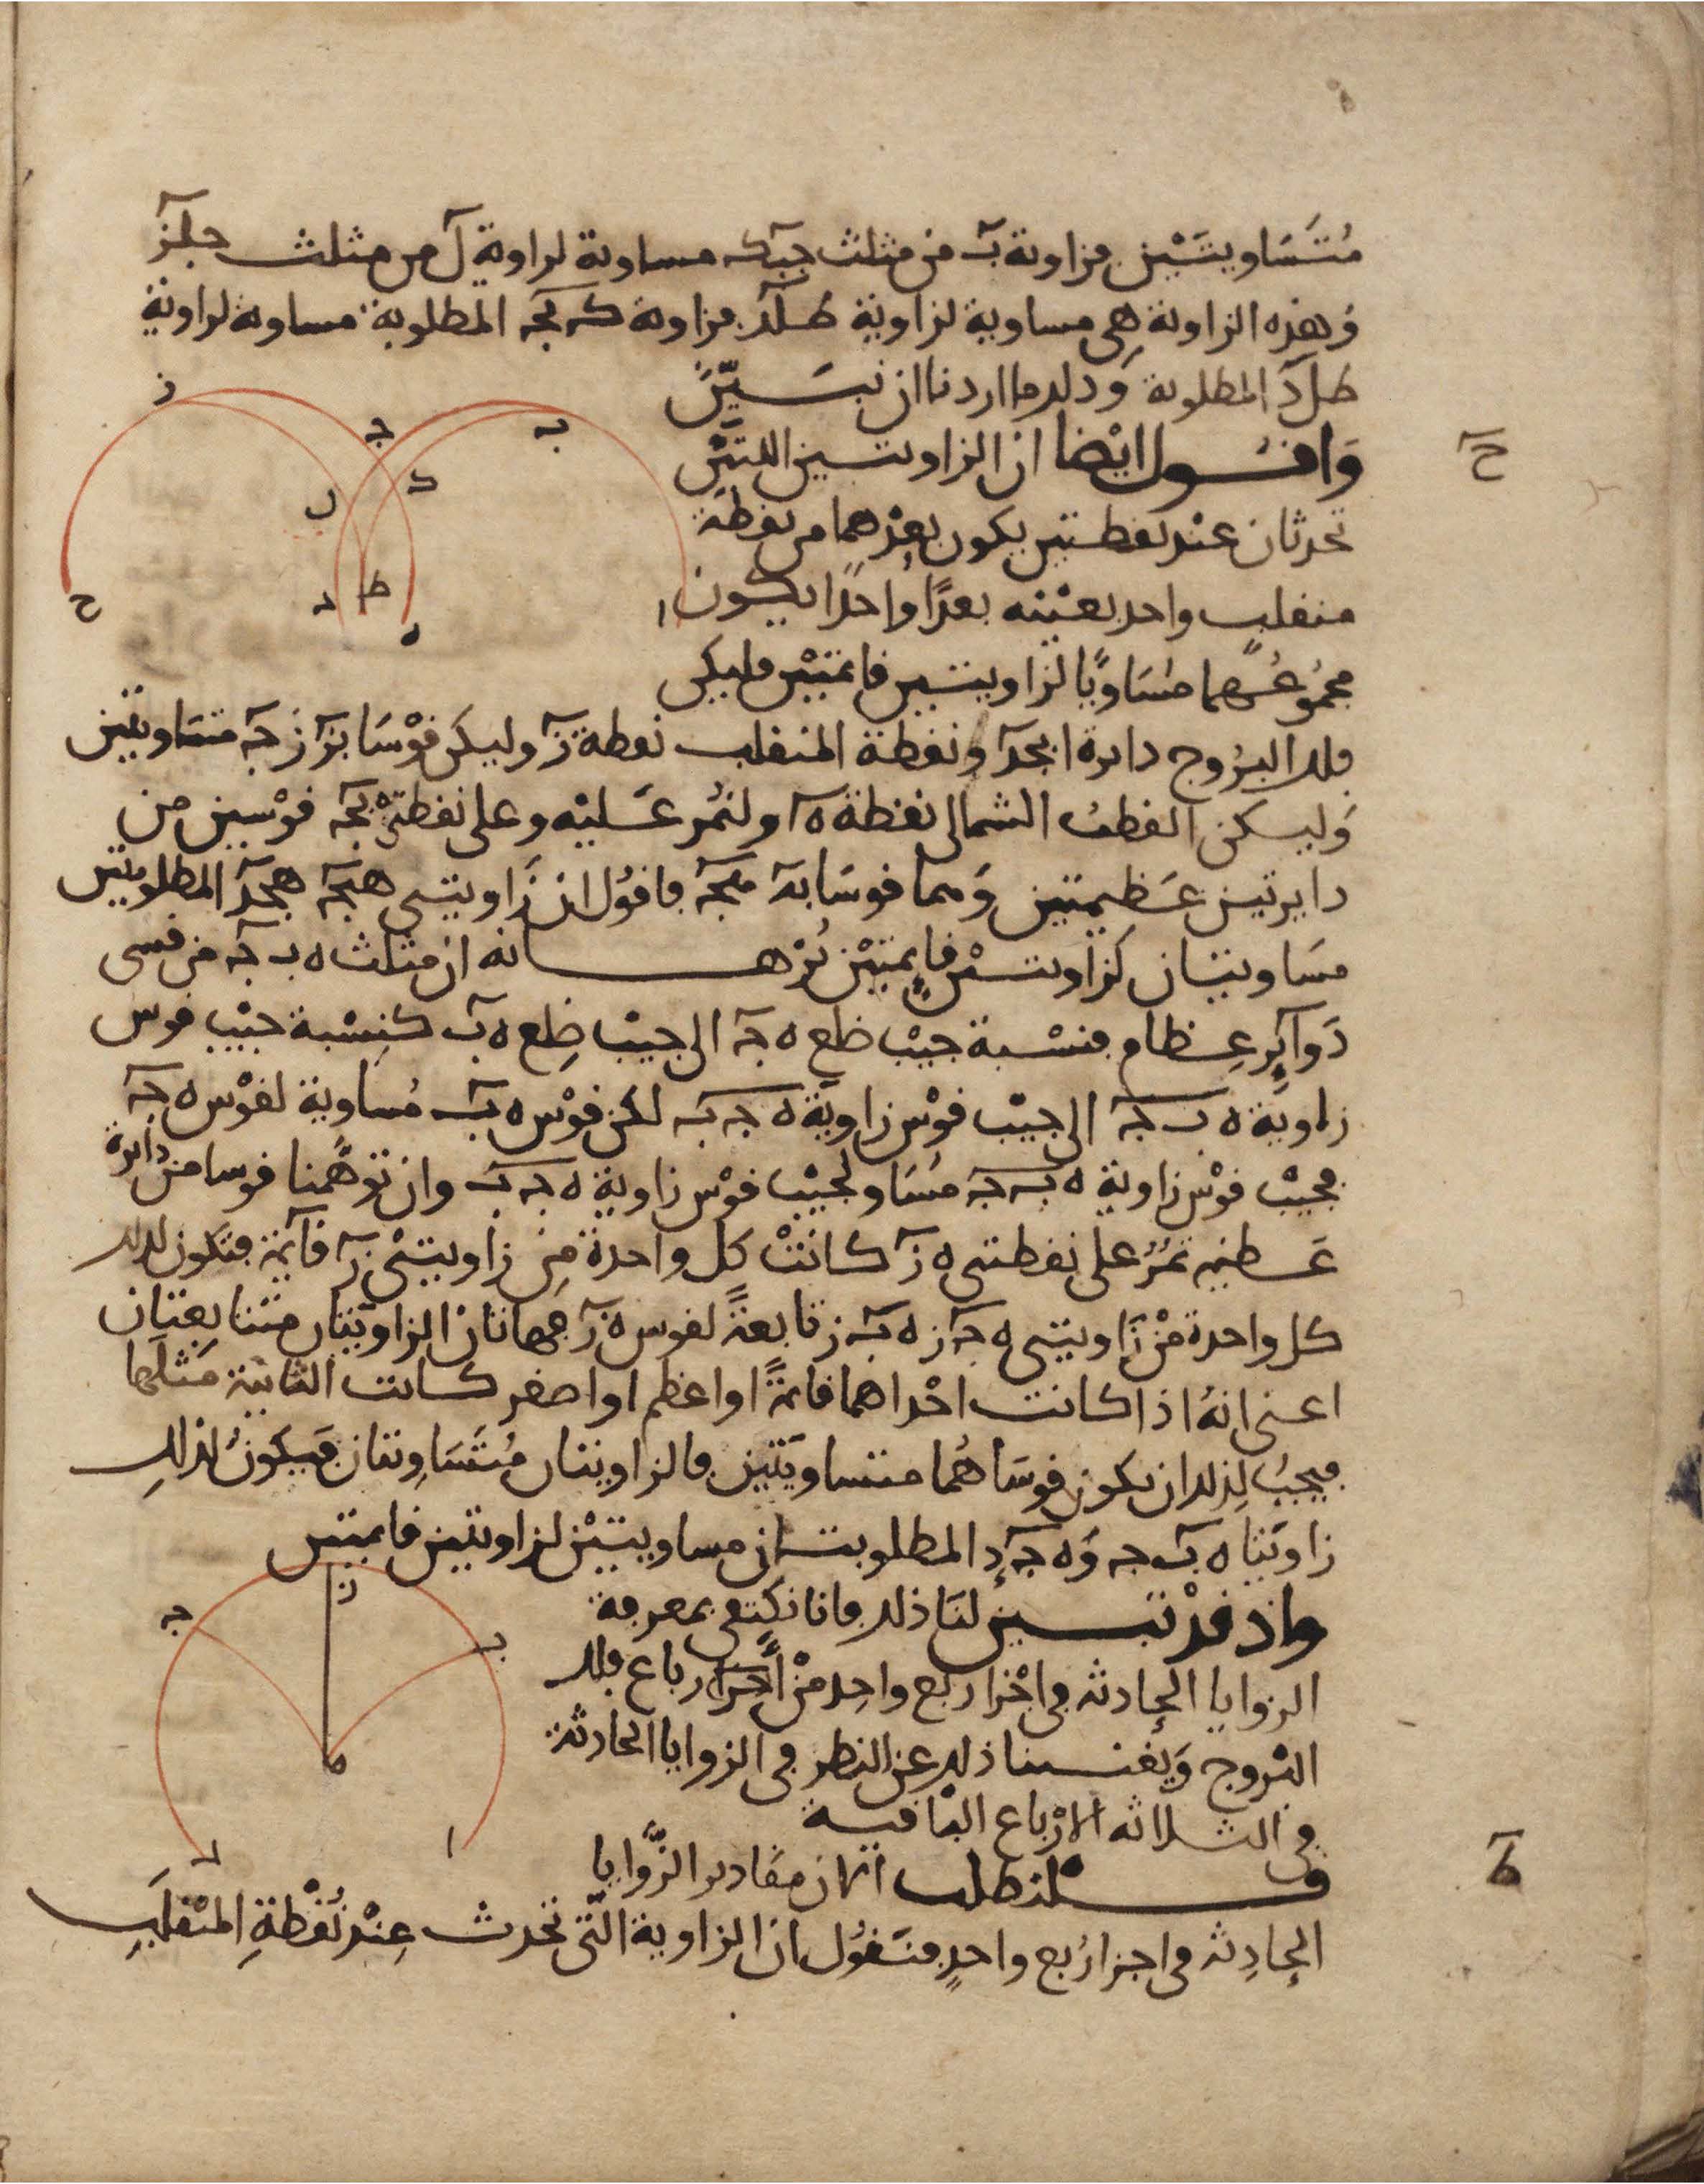 مُتَسَاويتَيْن فزاوية بَ من مثلث حبَكَ مساوية لزاوية لَ من مثلث حلَزَ
وَهذه الزاوية هِى مساوية لزاوية طلَدَ فزاوية كَـ بَجَـ المطلوبة مساوية لزاوية
طلَدَ المطلوبة وَذلك ما اردنا ان نبيّن
ز
جـ
ب
ك
ل
ط
د
ح
ه
ا
حَ
وَاقــول ايْضا ان الزاويتــين اللتَيْن
تحدثان عنْد نقطــتين يكون بعدْهما من نقطة
منقلبٍ واحد بعيْنه بعدًا وَاحدًا يكــون
مجمُوعُــهما مُسَاويًا لزاويتــين قائمتيْن فليكن
فلك البرُوج دايرة ابجدَ ونقطة المنقلب نقطة زَ وليكن قوْسَا بَزَ زجَـ متسَاويتين
وَليــكن القطبُ الشمالى نقطة هَ ولنُمر عَــليْه وعلى نقطتىْ بَجَـ قوْسين من
دايرتين عَظيمتين وَهما قوسَا هبَ هجَـ فاقوُل ان زَاويتــى هبجَـ هجدَ المطلوبتين
مسَاويتان كزاويتــيْن قايمتيْن بُرْهــانه ان مثلث ه ب جَـ من قسى
دَوآيرٍ عِــظام فنسْبة جيْب ضلع ه جَـ الى جيب ضِلع ه بَ كنِسْبة جيْب قوس
زاوية ه ب جَـ الى جيْب قوْس زاوية ه جـ بَ لكن قوْس ه بَ مُساوية لقوْس ه جَـ
فجيْب قوْس زاوية ه ب جَـ مُسَاو لجيْب قوْس زاوية ه جـ بَ وان توَهّمنا قوسا من دايرة
عَــظيمه تمُرُ على نقطتى ه زَ كانتْ كل واحدة مِن زاويتىْ زَ قآئمة فتكون لذلك
كل واحدة منْ زَاويتى ه جَـ ز ه بَـ ز تابعةً لقوس ه زَ فهاتان الزاويتان متتابعتان
اعنى انهُ اذا كانت احْداهما قائمةً او اعْظم او اصغر كانت الثانية مَثلَها
فيجبُ لِذلك ان يكون قوسَاهُما متساويَتين فالزاويتان مُتَسَاوِيتان فيكوُن لذلِك
زاويَتا ه بَ جـ وَه جَـ دِ المطلوبتــان مساويتيْن لزاويتين قايمتين
ز
جـ
ب
ه
د
ا
واذ قدْ تبــين لنَا ذلك فانا نكتفى بمعرفة
الزوايا الحادثه فى اجْزا ربع واحِد منْ أجزا ارباع فلك
البُروج وَيغنــينا ذلك عن النظر فى الزوايا الحادثة
فى الثــلاثه الارْباع البَاقيــة
ط
فــلنطلب الان مقادير الزّوايا
الحادِثه فى اجزا رُبع واحدٍ فنَقوُل ان الزاوية الّتى تحدث عِنْد نُقْطةِ المنْقلَبِ